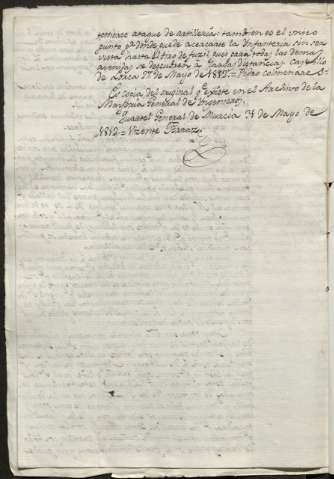 terreno ataque de artilleria: tambien es el unico
punto pr. donde puede acercarse la Infanteria sin ser
vista hasta el tiro de fusil, pues para todas las demas
avenidas se descubren à gran distancia. Castillo
de Lorca de Mayo de 1812 = Pedro
Es copia del original qe. existe en el Archivo de la
Mayoria General de Ingenieros.
Quartel General de Murcia 31 de Mayo de
1812 = Vicente Ferraz